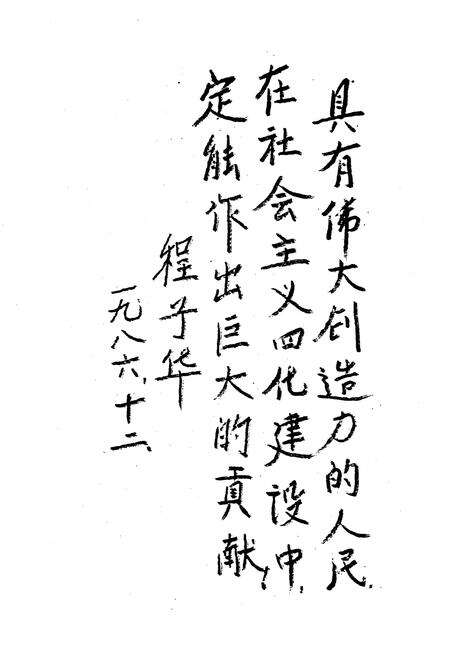 具有伟大创造力的人民.
在社会主义四化建设中.
定能作出巨大的贡献!
程子华
一九八六.十二.